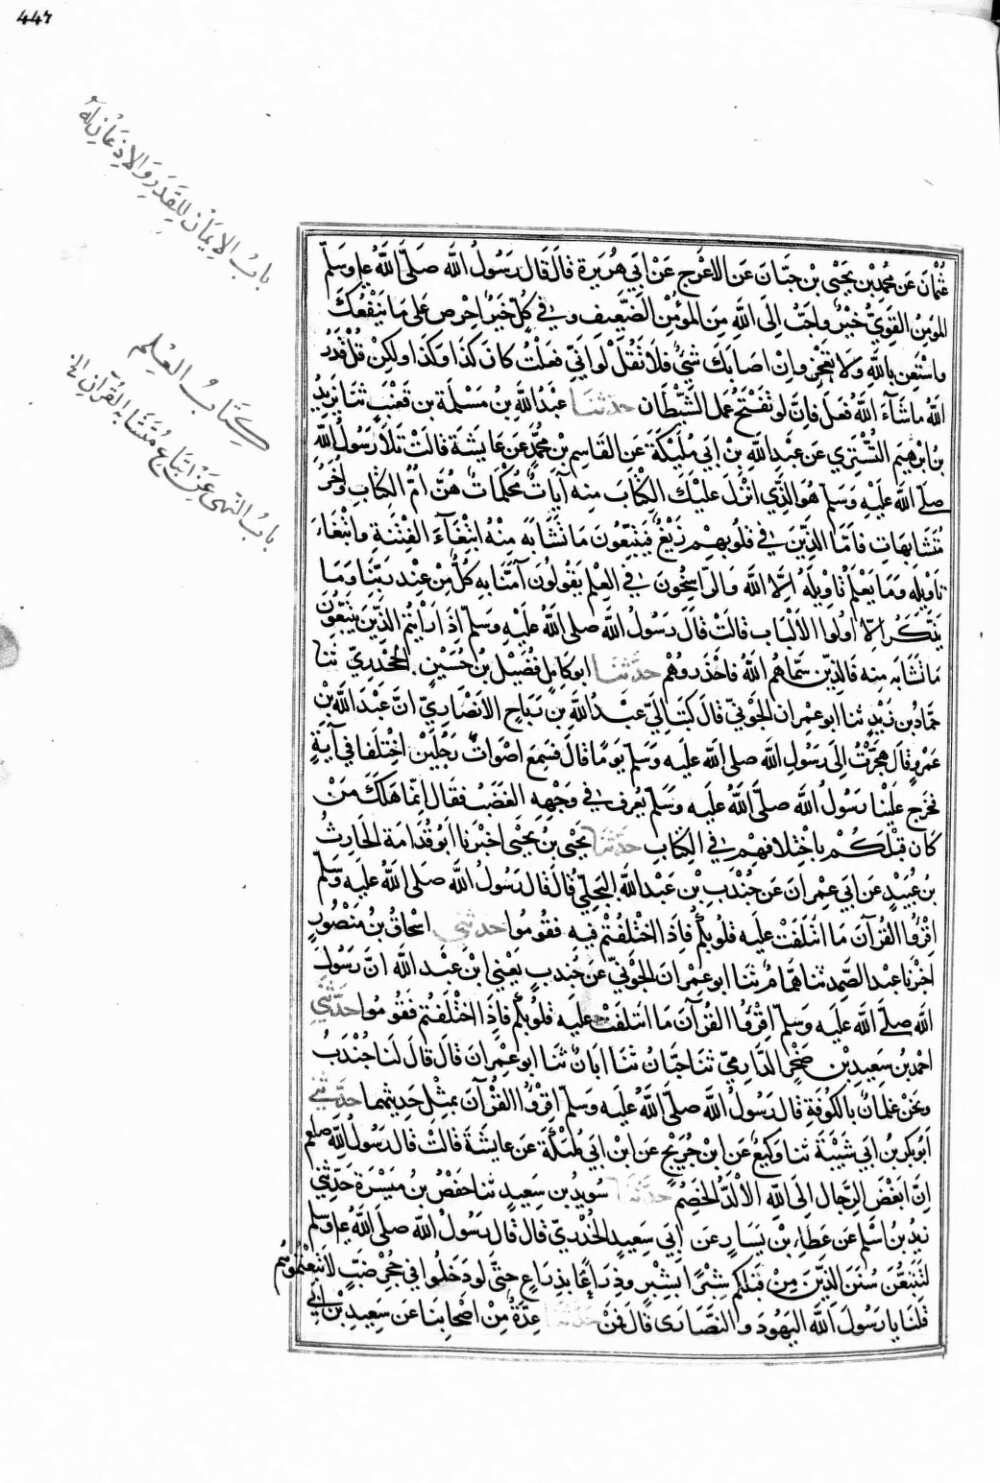 447
باب الايمان للقدر والاذعان له
كتاب العلم
باب النهى عن اتباع متشابه القرآن الخ
عثمان عن محمد بن يحيى بن حبان عن الاعرج عن ابي هريرة قال قال رسول الله صلى الله عليه وسلم
المؤمن القوي خير واحب الى الله من المؤمن الضعيف وفي كل خير احرص على ما ينفعك
واستعن بالله ولا تعجز وان اصابك شئ فلا تقل لو اني فعلت كان كذا وكذا ولكن قل قدر
الله ماشآء الله فعل فان لو تفتح عمل الشيطان حدثنا عبد الله بن مسلمة بن قعنب ثنا يزيد
بن ابرهيم التستري عن عبد الله بن ابي مليكة عن القاسم بن محمد عن عايشة قالت تلا رسول الله
صلى الله عليه وسلم هو الذي انزل عليك الكتاب منه آيات محكمات هن ام الكتاب واخر
متشابهات فاما الذين في قلوبهم زيغ فيتبعون ما تشابه منه ابتغآء الفتنة وابتغاء
تاويله وما يعلم تاويله الا الله والراسخون في العلم يقولون آمنا به كل من عند ربنا وما
يذكر الا اولوا الالباب قالت قال رسول الله صلى الله عليه وسلم اذا رايتم الذين يتبعون
ما تشابه منه فالذين سماهم الله فاحذروهم حدثنا ابو كامل فضيل بن حسين الجحدري ثنا
حماد بن زيد ثنا ابو عمران الجوني قال كتب الي عبد الله بن رباح الانصاري ان عبد الله بن
عمرو قال هجرت الى رسول الله صلى الله عليه وسلم يوما قال فسمع اصوات رجلين اختلفا في آية
فخرج علينا رسول الله صلى الله عليه وسلم يعرف في وجهه الغضب فقال انما هلك من
كان قبلكم باختلافهم في الكتاب حدثنا يحيى بن يحيى اخبرنا ابو قدامة الحارث
بن عبيد عن ابي عمران عن جندب بن عبد الله البجلي قال قال رسول الله صلى الله عليه وسلم
اقرؤا القرآن ما ائتلفت عليه قلوبكم فاذا اختلفتم فيه فقوموا حدثني اسحاق بن منصور
اخبرنا عبد الصمد ثنا همام ثنا ابو عمران الجوني عن جندب يعني ابن عبد الله ان رسول
الله صلى الله عليه وسلم اقرؤا القرآن ما ائتلفت عليه قلوبكم فاذا اختلفتم فقوموا حدثني
احمد بن سعيد بن صخر الدارمي ثنا حبان ثنا ابان ثنا ابو عمران قال قال لنا جندب
ونحن غلمان بالكوفة قال رسول الله صلى الله عليه وسلم اقرؤا القرآن بمثل حديثهما حدثني
ابو بكر بن ابي شيبة ثنا وكيع عن ابن جريج عن ابن ابي مليكة عن عايشة قالت قال رسول الله صلعم
ان ابغض الرجال الى الله الالد الخصم حدثنا سويد بن سعيد ثنا حفص بن ميسرة حدثني
زيد بن اسلم عن عطاء بن يسار عن ابي سعيد الخدري قال قال رسول الله صلى الله عليه وسلم
لتتبعن سنن الذين من قبلكم شبرا بشبر وذراعا بذراع حتى لو دخلوا في جحر ضب لاتبعتموهم
قلنا يا رسول الله اليهود والنصارى قال فمن حدثنا عدة من اصحابنا عن سعيد بن ابي